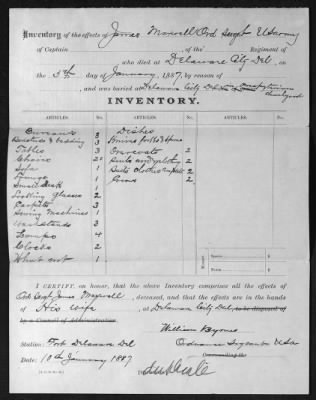 Inventory of the effects of James Maxwell Ord Sergt U S Army
of Captain of the Regiment of
who died at Delaware City Del, on
the 5th day of January, 1887, by reason of
and was buried at Delaware City Del in Presbyterian
churchyard
INVENTORY.
ARTICLES. No. ARTICLES. No. ARTICLES. No.
3 Dishes
Bedsteads & bedding 3
Tables 3 Overcoats 2
Chairs 20 Suits 2
Sofa 1 Suits clothes 2
Lounge 1 2
Small Desk 1
Looking Glasses 2
Carpets 3
Sewing Machines 1
Washstands 3
Lamps 4
Clocks 2
What not 1
Specie, $
Notes, $
I CERTIFY, on honor, that the above Inventory comprises all the effects
of Ord Sergt James Maxwell, deceased, and that the effects are in the hands
of His wife at Delaware City Del, to be disposed of
by a Council of Administration.
William Byrnes
Station: Fort Delaware Del Ordnance Sergeant U S A
Date: 10th January 1887 Commanding the